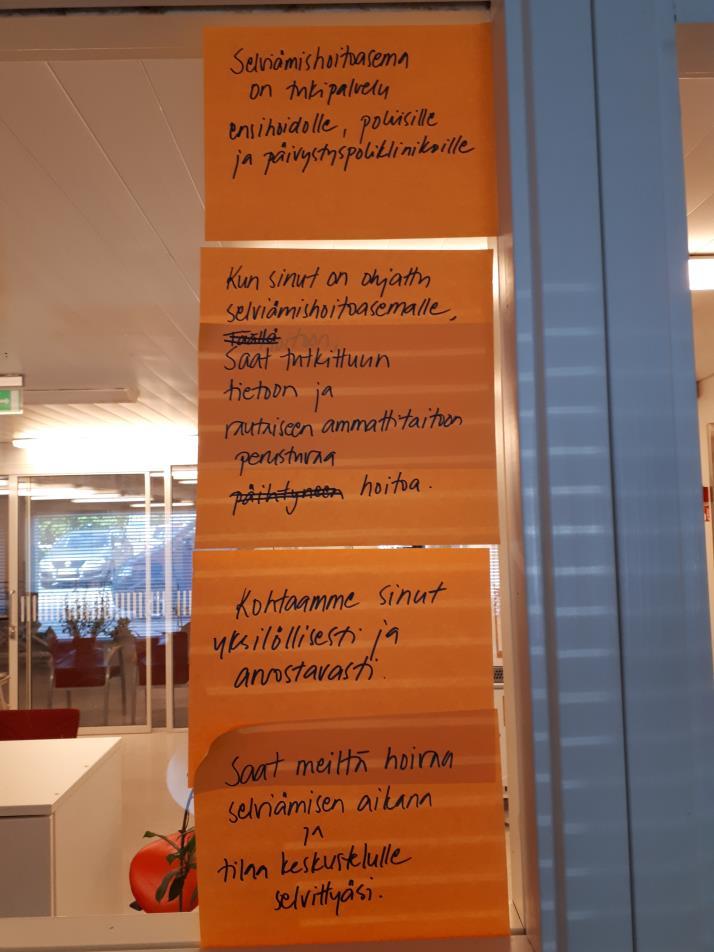 Selviämishoitoasema
on tukipalvelu
ensihoidolle, poliisille
ja päivystyspoliklinikoille
Kun sinut on ohjattu
selviämishoitoasemalle,
Saat tutkittuun
tietoon ja
rautaiseen ammattitaitoon
perustuvaa
päihtyneen hoitoa.
Kohtaamme sinut
yksilöllisesti ja
arvostavasti.
Saat meiltä hoivaa
selviämisen aikana
ja
tilaa keskustelulle
selvittyäsi.